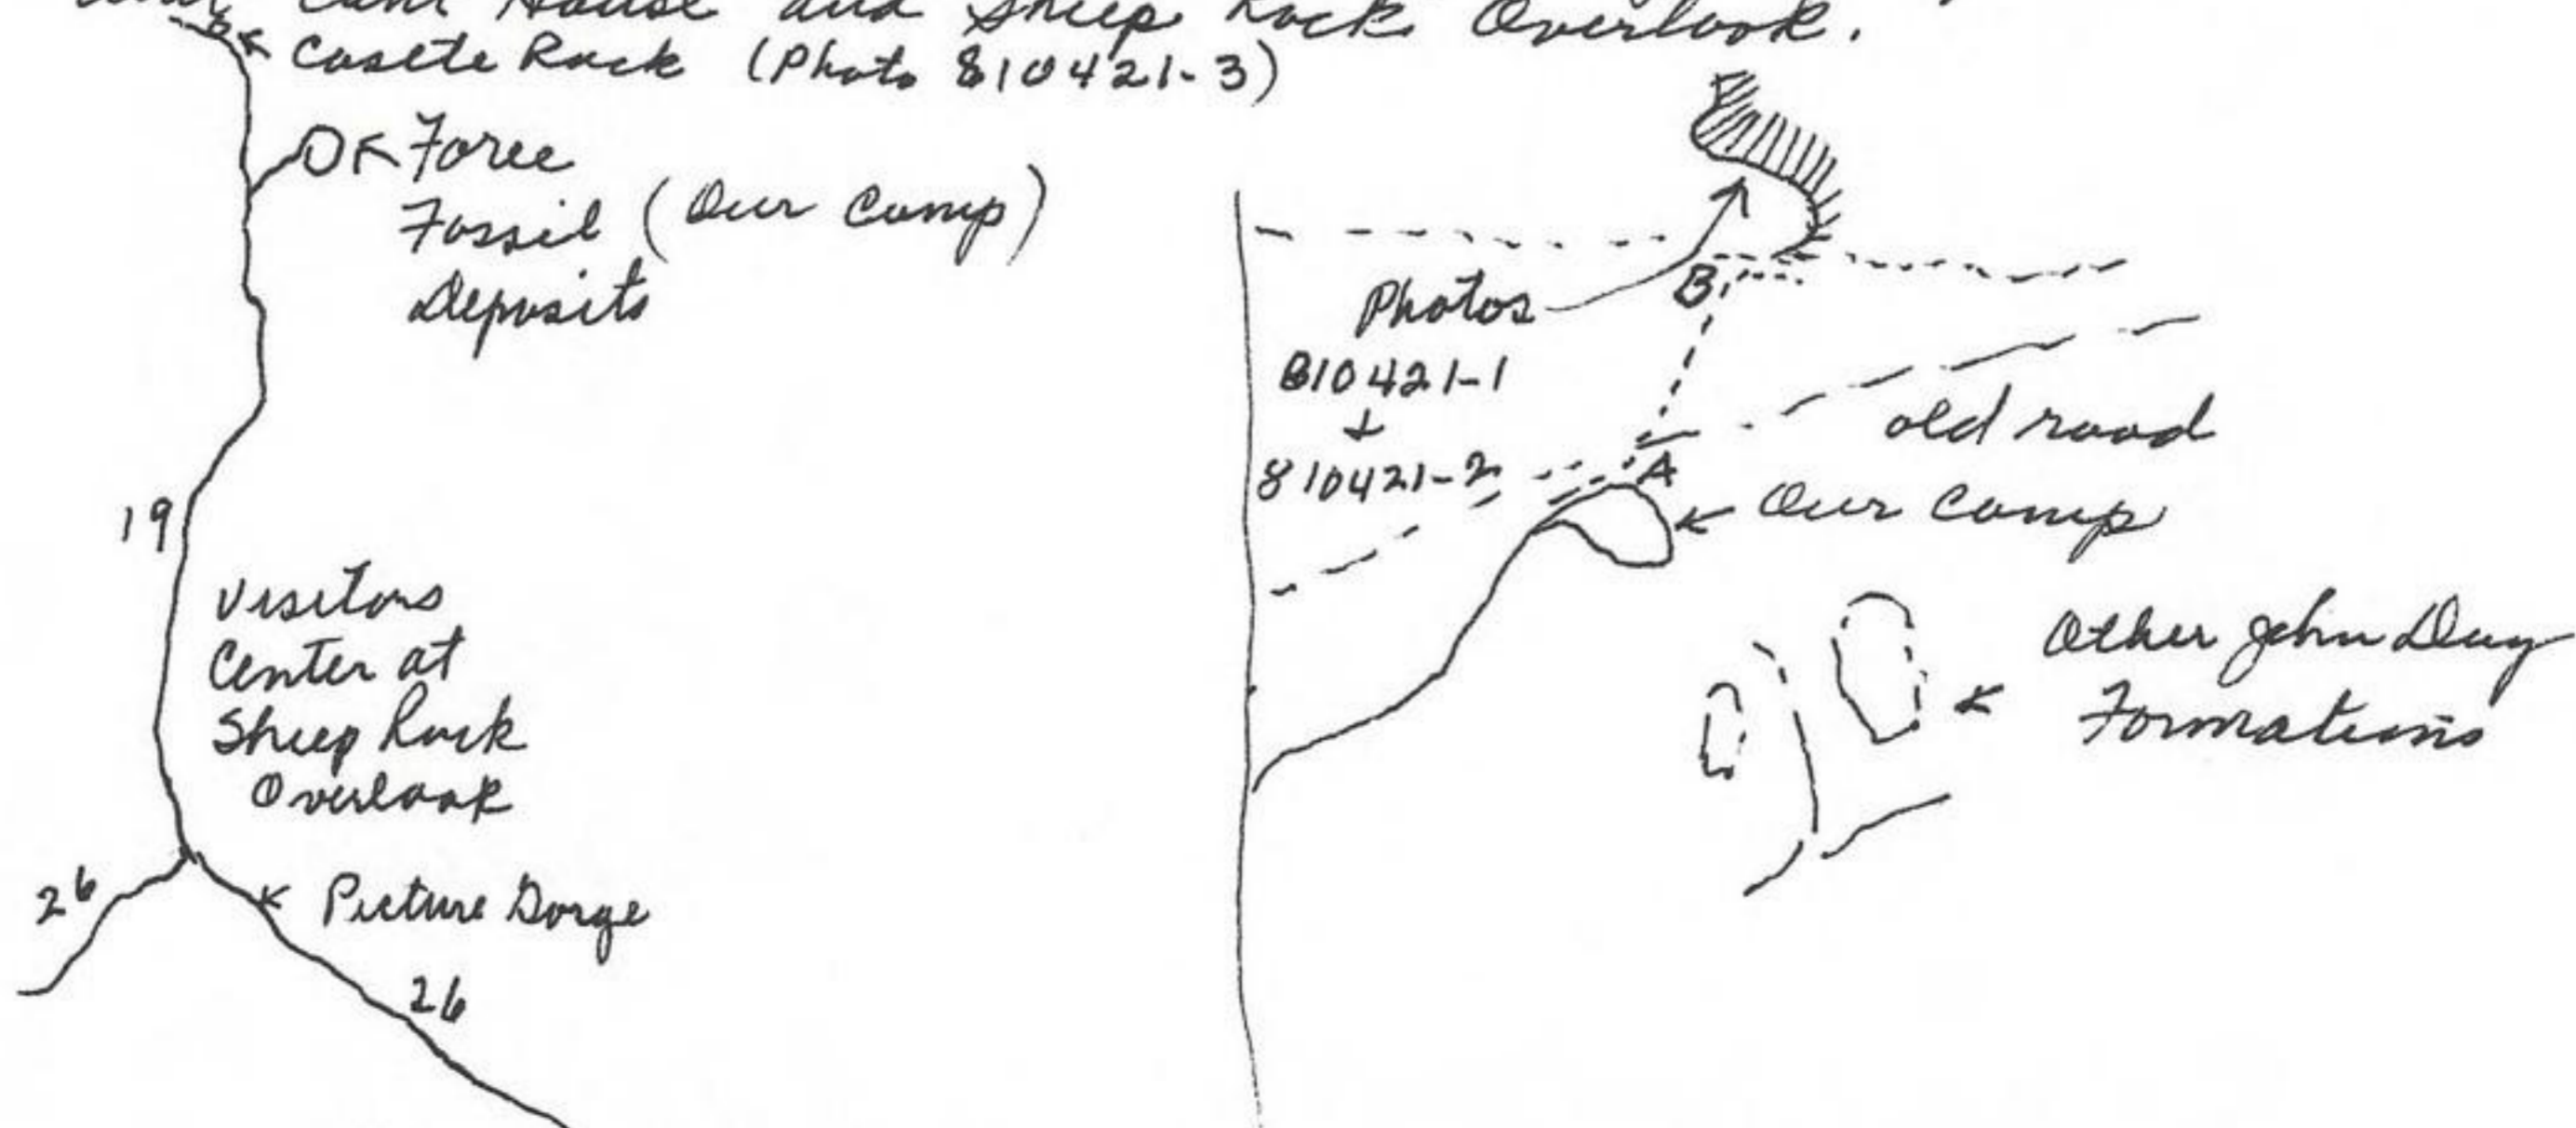 House and Sheep Rock Overlook.
Castle Rock (Photo 810421-3)
Foree
Fossil (Our Camp)
Deposits
19
Visitors
Center at
Sheep Rock
Overlook
26
Picture Gorge
26
Photos
B
810421-1
+
810421-2
A
old road
Our Camp
Other John Day
Formations